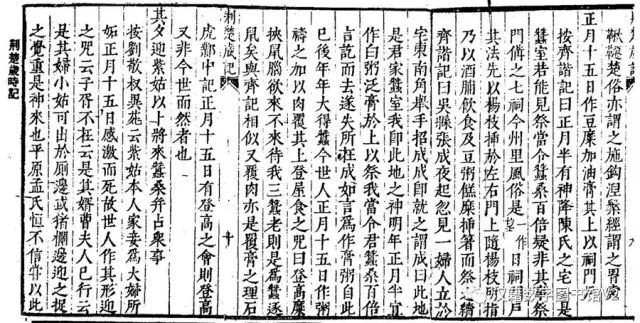 鞦韆楚俗亦謂之施鈎涅槃經謂之罥索
正月十五日作豆糜加油膏其上以祠門
按齊諧記曰正月半有神降陳氏之宅云是
蠶室若能見祭當令蠶桑百倍疑非其事祭
門備之七祠今州里風俗是一作望日祠門戶
其法先以楊枝插於左右門上隨楊枝所指
乃以酒脯飲食及豆粥餻糜插箸而祭之續
齊諧記曰吳縣張成夜起忽見一婦人立於
宅東南角舉手招成成即就之謂成曰此地
是君家蠶室我即此地之神明年正月半宜
作白粥泛膏於上以祭我當令君蠶桑百倍
言訖而去遂失所在成如言為作膏粥自此
已後年年大得蠶今世人正月十五日作粥
禱之加以肉覆其上登屋食之咒曰登高糜
挾鼠腦欲來不來待我三蠶老則是為蠶逐
鼠矣與齊記相似又覆肉亦是覆膏之理石
荆楚歲記
十
虎鄴中記正月十五日有登高之會則登高
又非今世而然者也
其夕迎紫姑以卜將來蠶桑并占衆事
按劉敬叔異苑云紫姑本人家妾為大婦所
妬正月十五日感激而死故世人作其形迎
之咒云子胥不在云是其婿曹夫人已行云
是其婦小姑可出於厠邊或猪欄邊迎之捉
之覺重是神來也平原孟氏恒不信嘗以此
荆楚歲時記